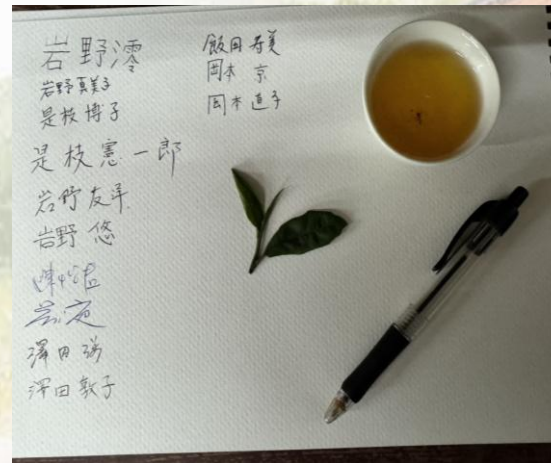 岩野澪
岩野真美子
是枝博子
是枝憲一郎
岩野友洋
岩野 悠
澤田
澤田敦子
飯田寿美
岡本 京
岡本直子